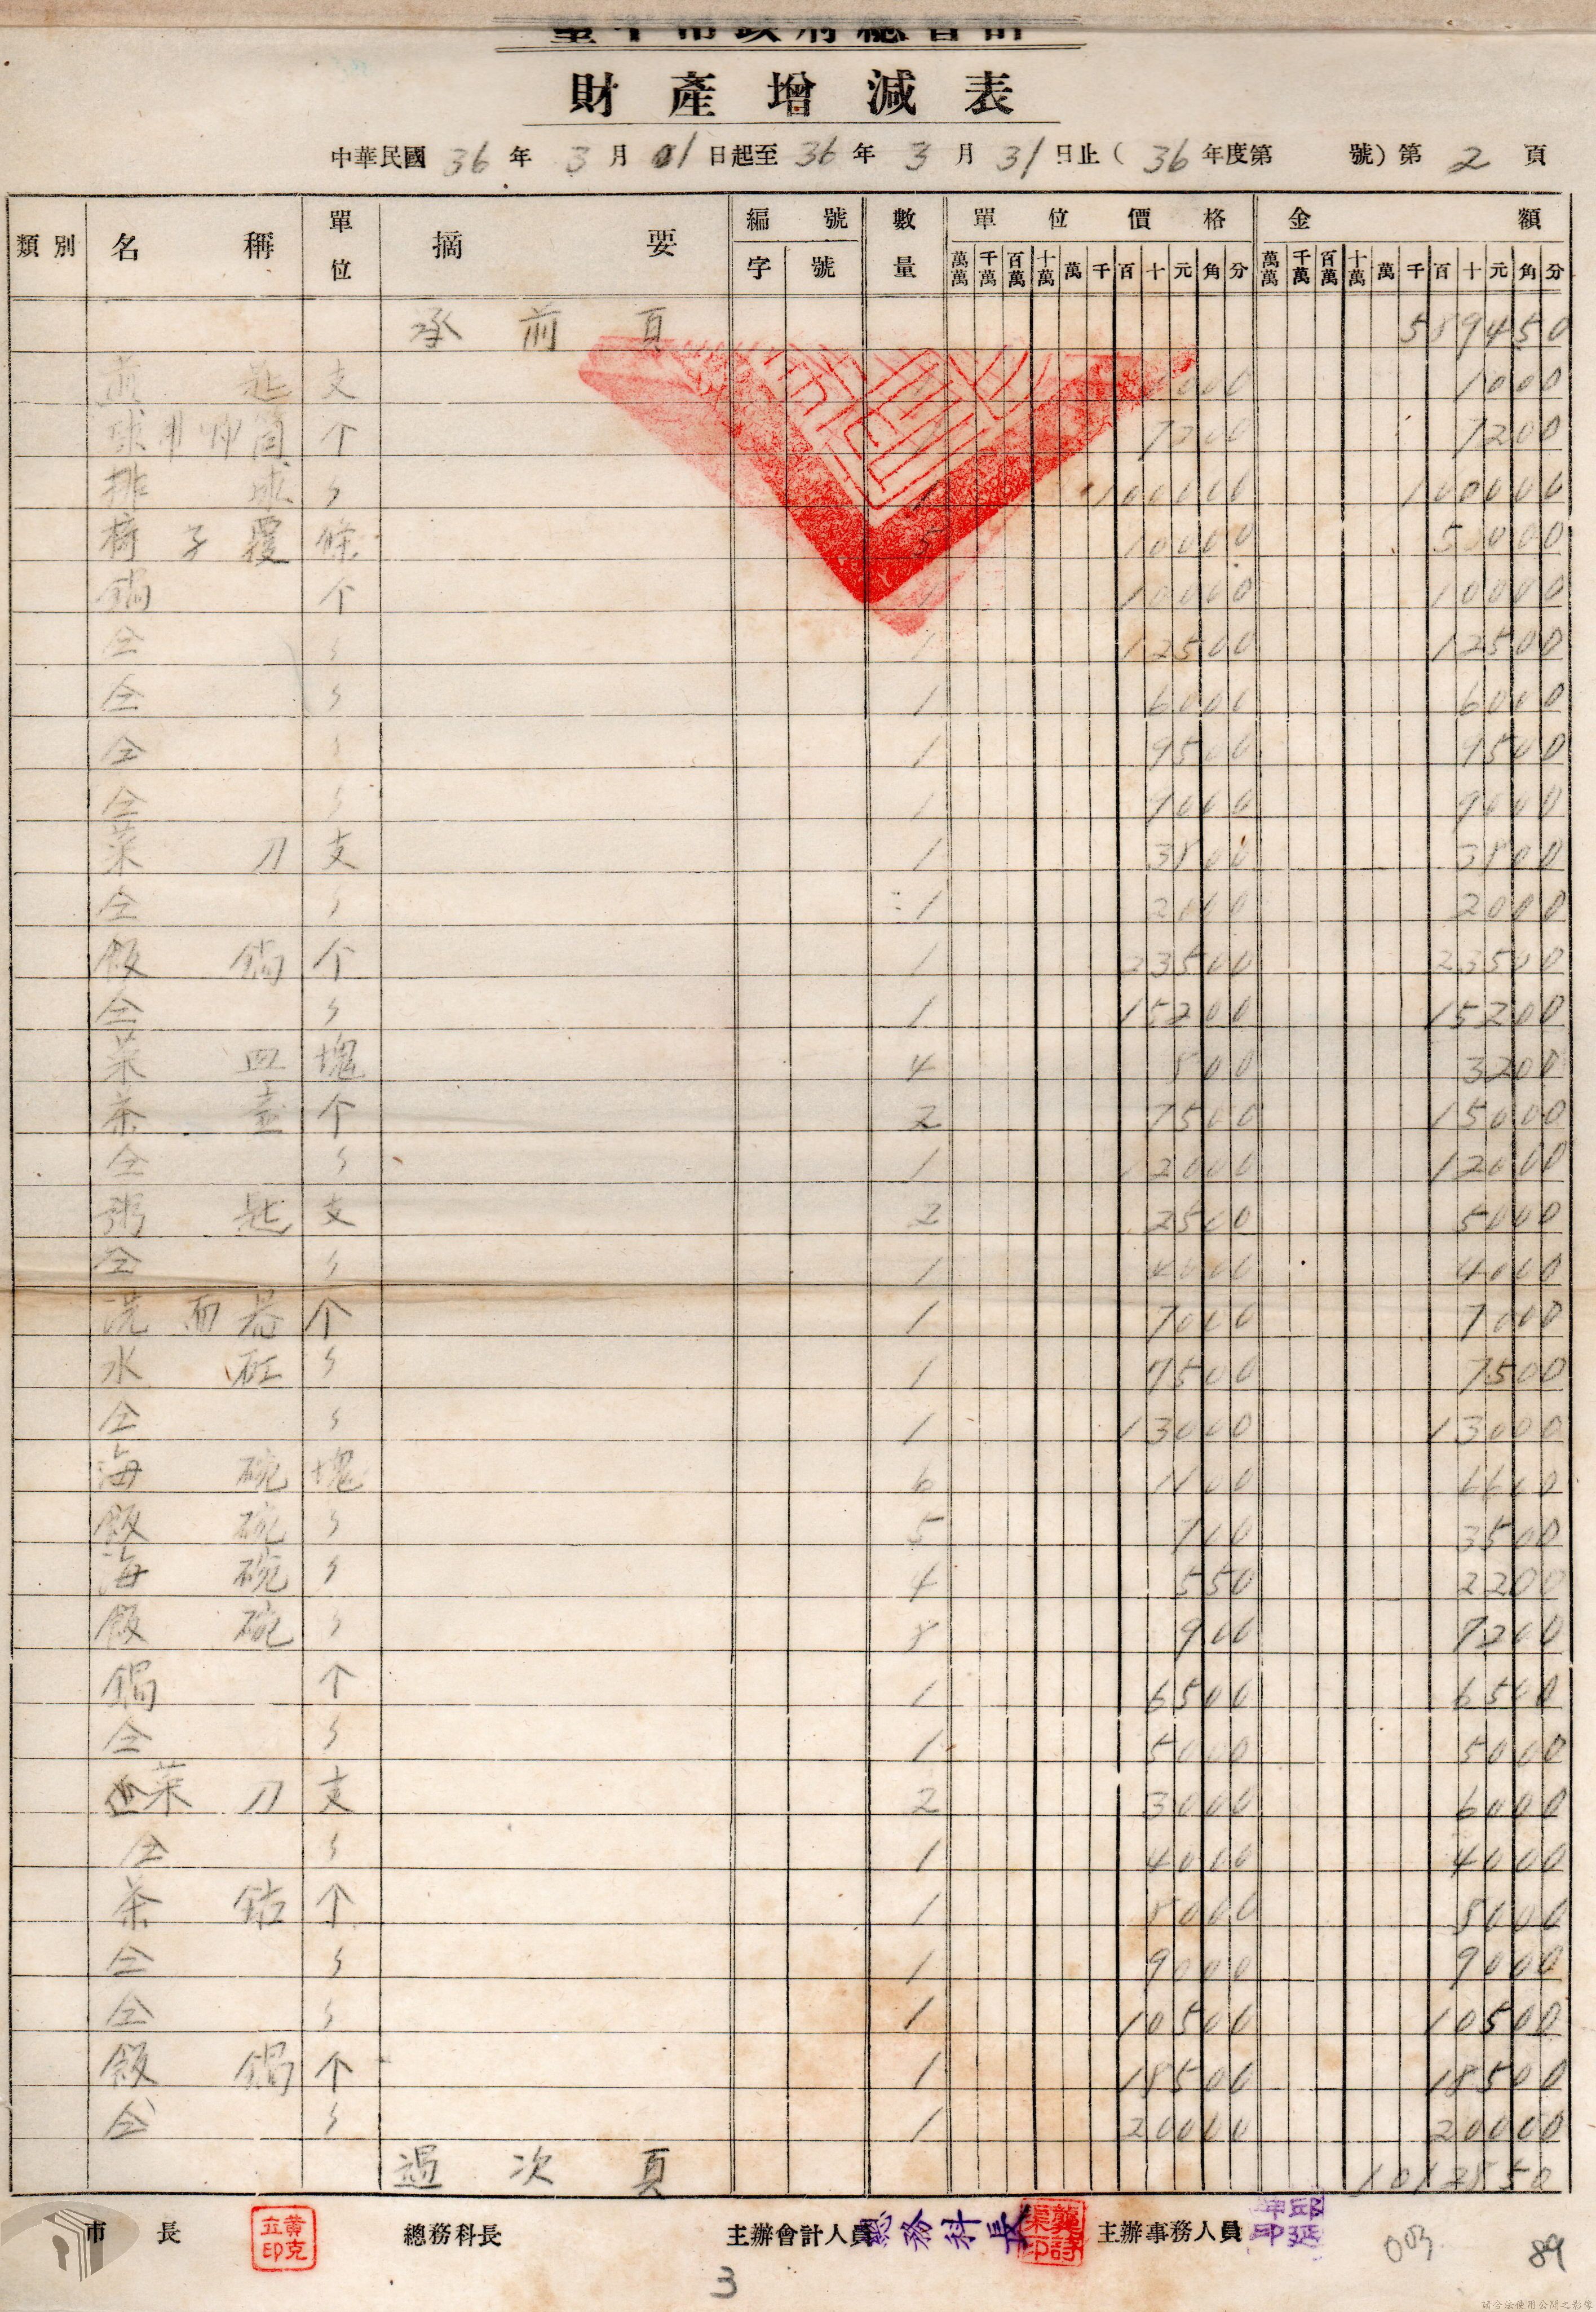 臺中市政府總會計
財產增減表
中華民國36年3月01日起至36年3月31日止(36年度第 號)第2頁
類別 名稱 單位 摘要 編號 數量 單位價格 金額
字 號 萬萬 千萬 百萬 十萬 萬 千 百 十 元 角 分 萬萬 千萬 百萬 十萬 萬 千 百 十 元 角 分
承前頁 589450
匙 支 1000
个 7200 7200
排球 〃 1 100000 100000
椅子覆 條 5 10000 50000
鍋 个 1 10000 10000
仝 〃 1 12500 12500
仝 〃 1 6000 6000
仝 〃 1 9500 9500
仝 〃 1 9000 9000
菜刀 支 1 3800 3800
仝 〃 1 2000 2000
飯鍋 个 1 23500 23500
仝 〃 1 15200 15200
菜皿 塊 4 800 3200
茶壺 个 2 7500 15000
仝 〃 1 12000 12000
粥匙 支 2 2500 5000
仝 〃 1 4000 4000
洗面器 个 1 7000 7000
水缸 〃 1 7500 7500
仝 〃 1 13000 13000
海碗 塊 6 1100 6600
飯碗 〃 5 700 3500
海碗 〃 4 550 2200
飯碗 〃 8 900 7200
鍋 个 1 6500 6500
仝 〃 1 5000 5000
菜刀 支 2 3000 6000
仝 〃 1 4000 4000
茶鈷 个 1 8000 8000
仝 〃 1 9000 9000
仝 〃 1 10500 10500
飯鍋 个 1 18500 18500
仝 〃 1 20000 20000
過次頁 1012850
市長 黃克立印 總務科長 主辦會計人員 總務科長 主辦事務人員
3
89
請合法使用公開之影像